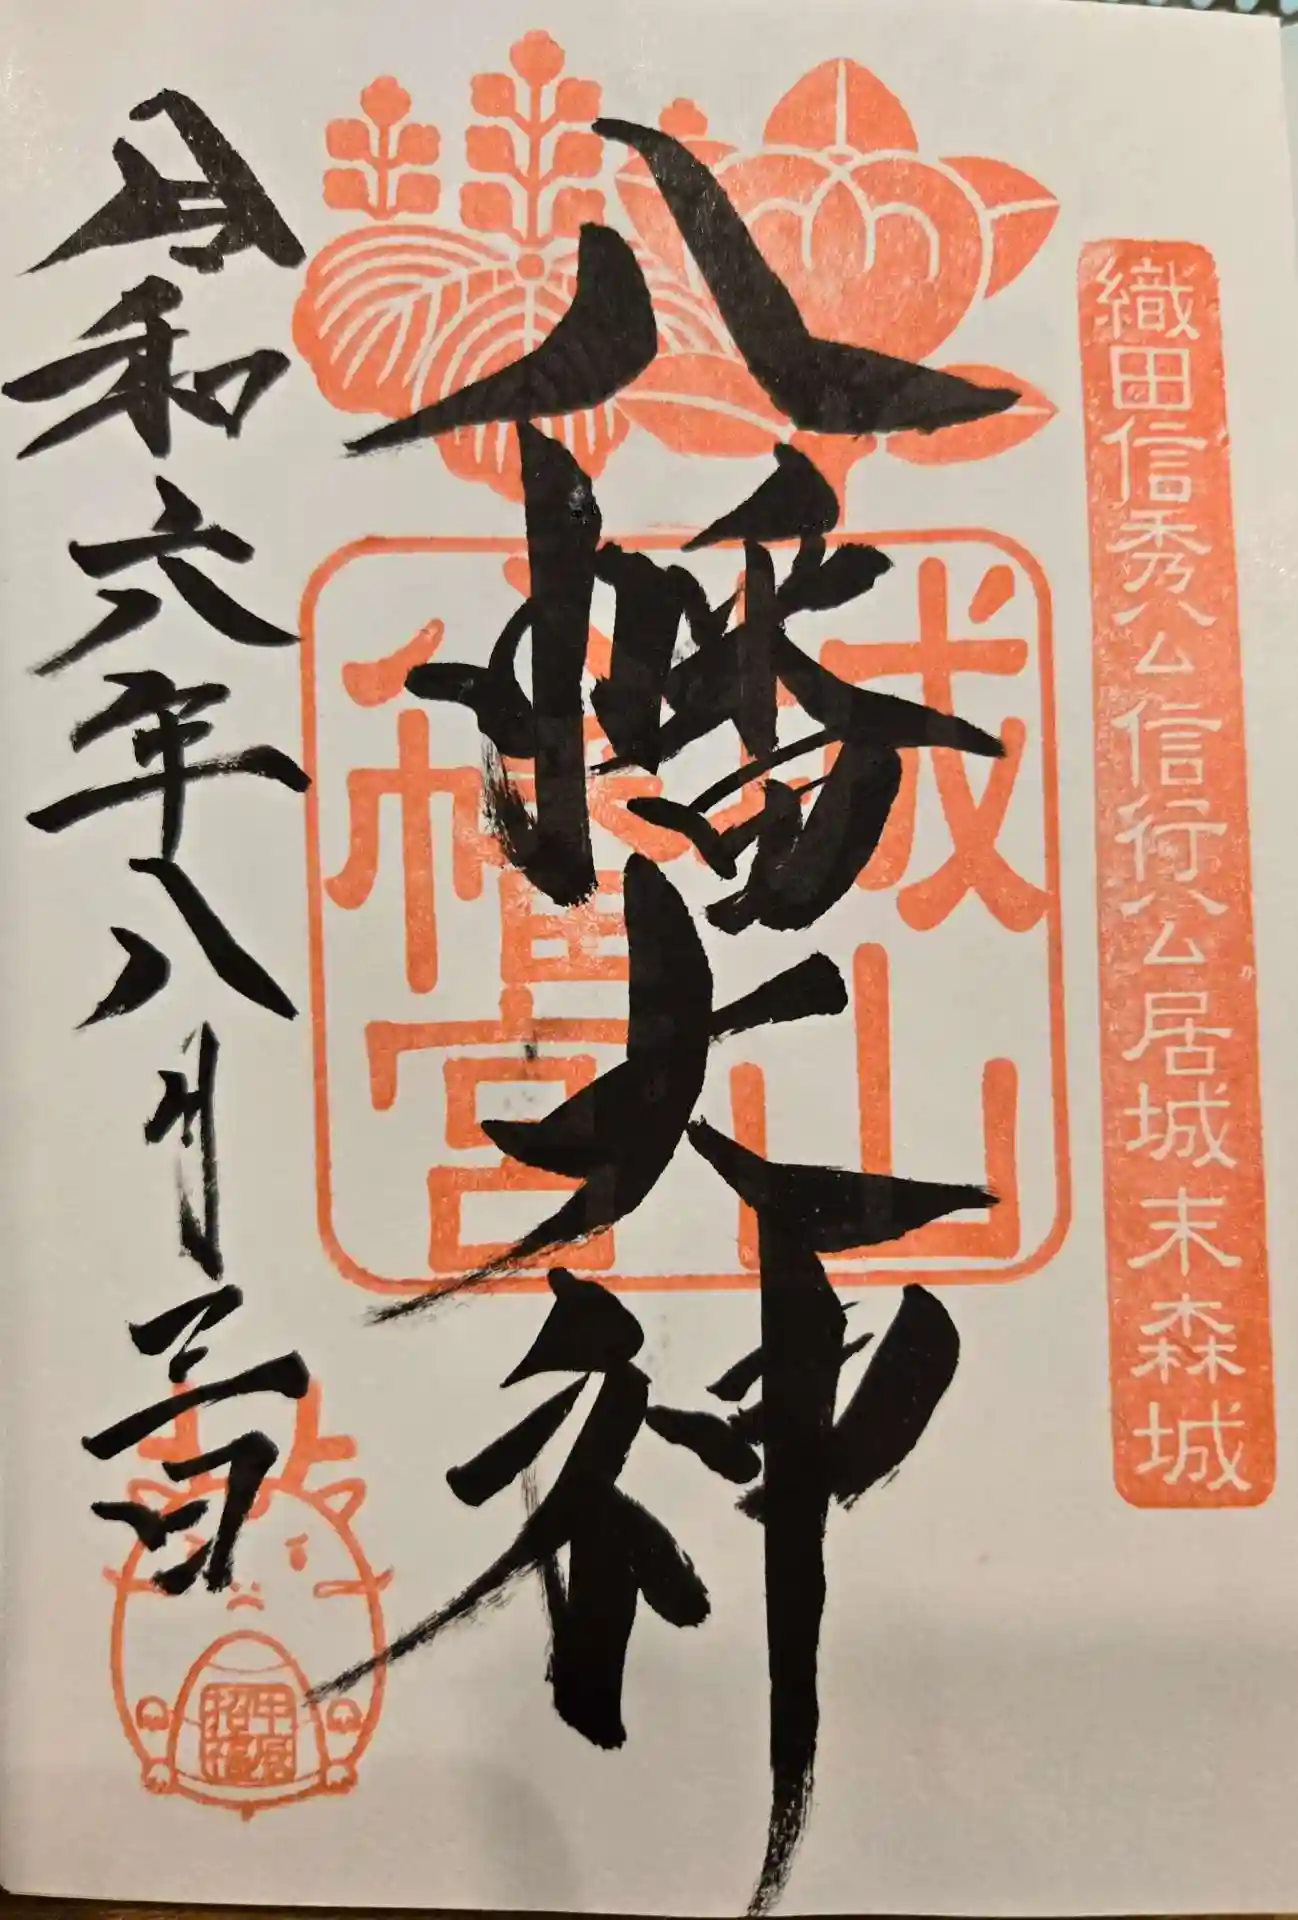 織田信秀公信行公居城末森城
八幡大神
城山
八幡宮
令和六年八月三日
甲辰
招福